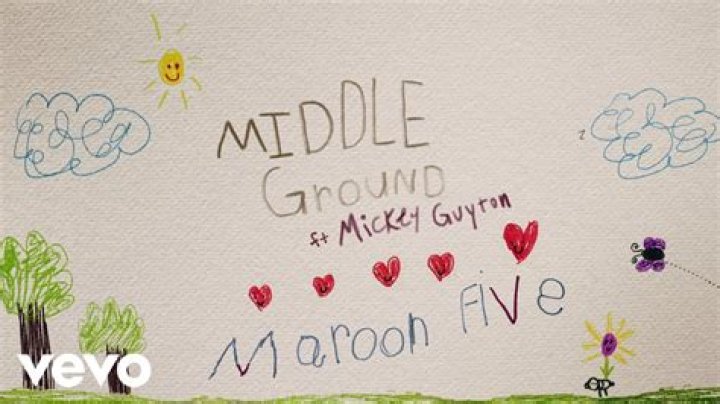 MIDDLE
GROUND
ft Mickey Guyton
Maroon Five
vevo